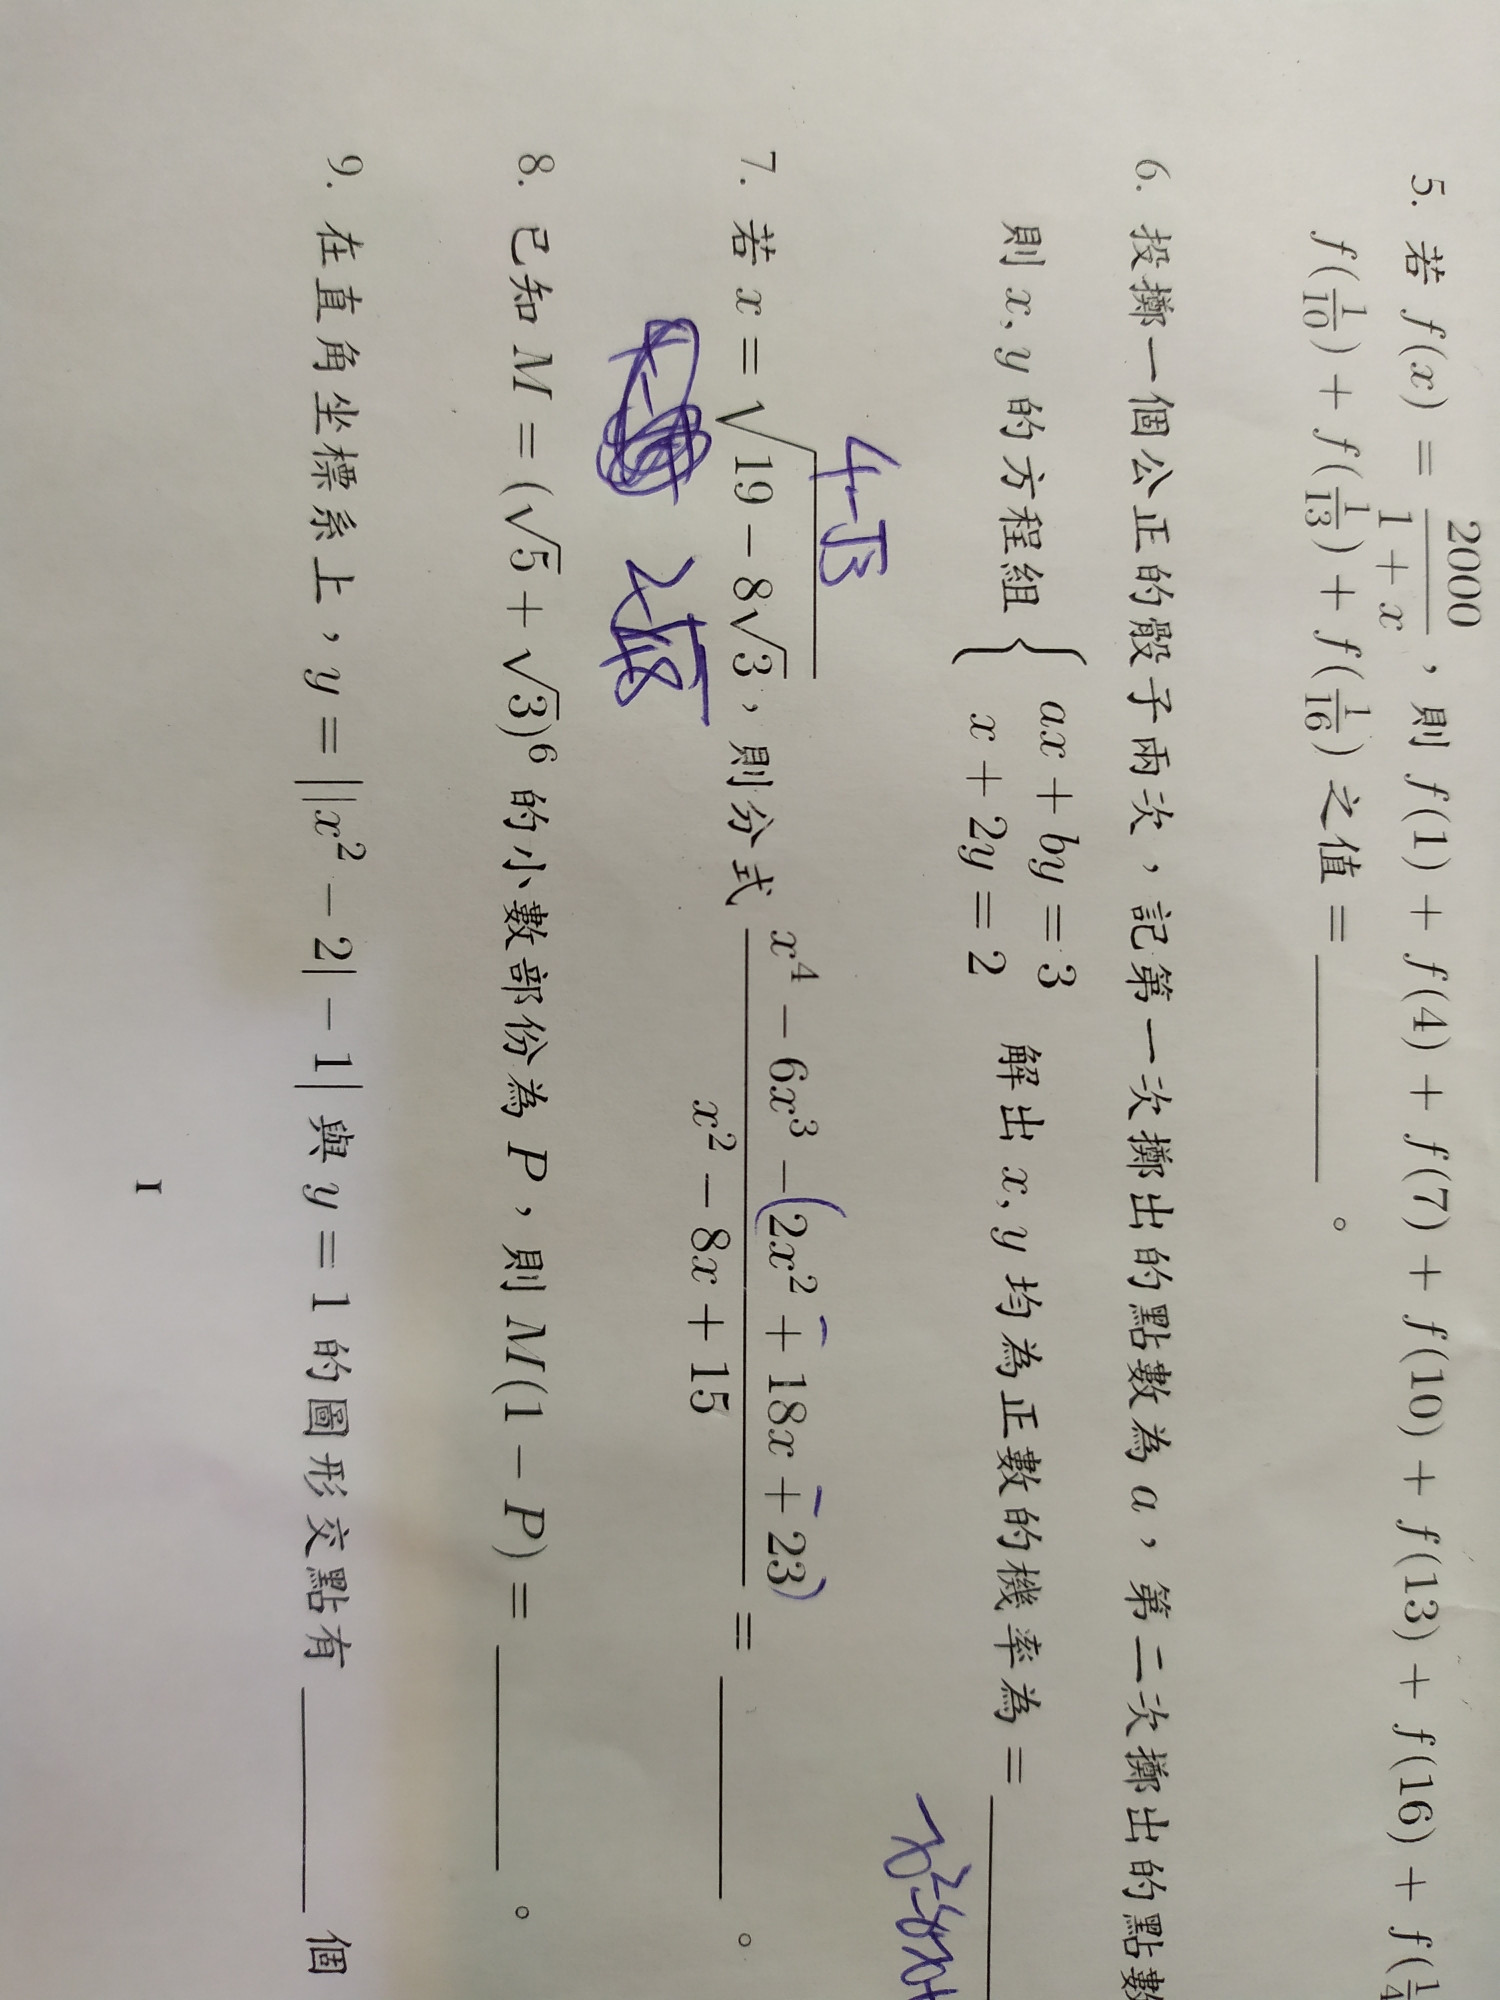 5. 若 f(x) = 2000/(1 + x)，則 f(1) + f(4) + f(7) + f(10) + f(13) + f(16) + f(1/4
f(1/10) + f(1/13) + f(1/16) 之值 = ________。
6. 投擲一個公正的骰子兩次，記第一次擲出的點數為 a，第二次擲出的點數
則 x, y 的方程組 { ax + by = 3
x + 2y = 2 解出 x, y 均為正數的機率為 = ________
x²-8x+
4-√3
7. 若 x = √(19 − 8√3)，則分式 (x⁴ − 6x³ − (2x² + 18x + 23))/(x² − 8x + 15) = ________。
8. 已知 M = (√5 + √3)⁶ 的小數部份為 P，則 M(1 − P) = ________。
9. 在直角坐標系上，y = ||x² − 2| − 1| 與 y = 1 的圖形交點有 ________ 個
1